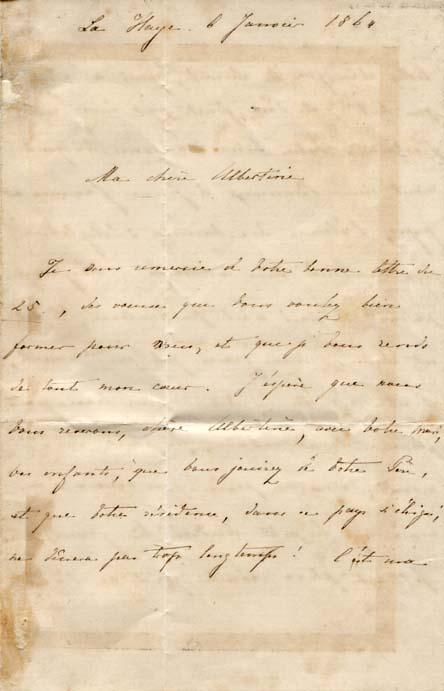 La Haye. 6 Janvier 1864
Ma chère Albertine
Je vous remercie de votre bonne lettre du
25., des voeux que vous voulez bien
former pour nous, et que je vous rends
de tout mon coeur. J'espère que nous
vous reverrons, chère Albertine, avec votre mari,
vos enfants, que vous jouirez de votre Père,
et que votre résidence, dans ce pays si éloigné,
ne durera pas trop longtemps! C'est ma